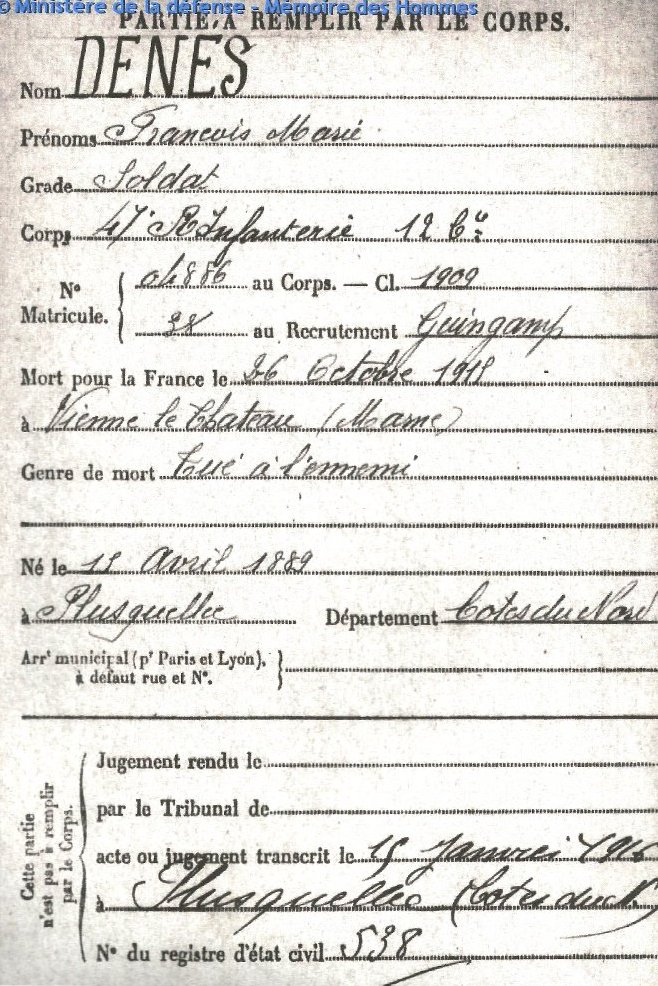 © Ministère de la défense - Mémoire des Hommes
PARTIE A REMPLIR PAR LE CORPS.
Nom DENES
Prénoms Francois Marie
Grade Soldat
Corps 47e R Infanterie 12 Cie
No Matricule. 04886 au Corps. — Cl. 1909
38 au Recrutement Guingamp
Mort pour la France le 26 Octobre 1915
à Vienne le Chateau (Marne)
Genre de mort Tué à l'ennemi
Né le 15 Avril 1889
à Plusquellec Département Cotes du Nord
Arrt municipal (pr Paris et Lyon),
à défaut rue et No.
Cette partie n'est pas à remplir par le Corps.
Jugement rendu le
par le Tribunal de
acte ou jugement transcrit le 15 Janvier 1916
à Plusquellec (Cotes du N
No du registre d'état civil 538